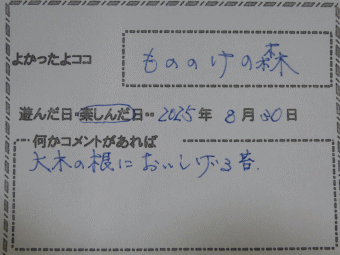 よかったよココ もののけの森
遊んだ日・楽しんだ日・・2025年 8月30日
何かコメントがあれば
大木の根においしげる苔.